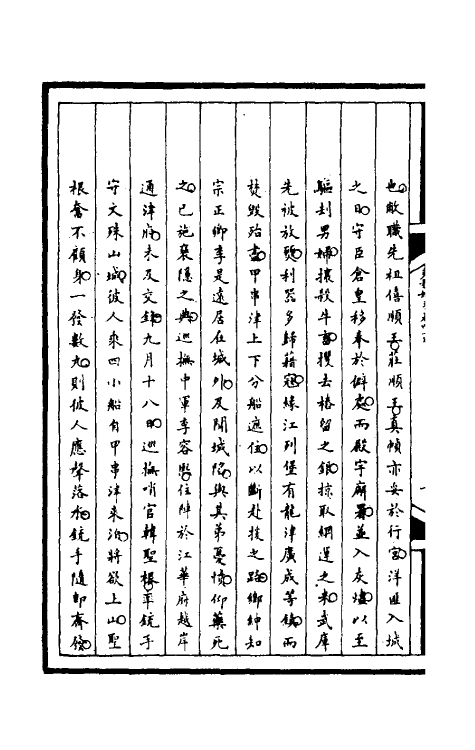 也敝職先祖僖順王莊順王真幀亦妥於行宮洋匪入城
之日守臣倉皇移奉於僻處而殿宇廨署並入灰燼以至
驅刦男婦攘殺牛畜攫去樁留之銀掠取綱運之米武庫
先被放頭利器多歸藉寇緣江列堡有龍津廣成等鎮而
焚毀殆盡甲串津上下分船遮住以斷赴援之路鄉紳知
宗正卿李是遠居在城外及聞城陷與其弟憂憤仰藥死
之已施褒隱之典巡撫中軍李容熙住陣於江華府越岸
通津府未及交鋒九月十八日巡撫哨官韓聖根率銃手
守文殊山城彼人乘四小船自甲串津來泊將欲上山聖
根奮不顧身一發數丸則彼人應聲落水銃手隨即齊發